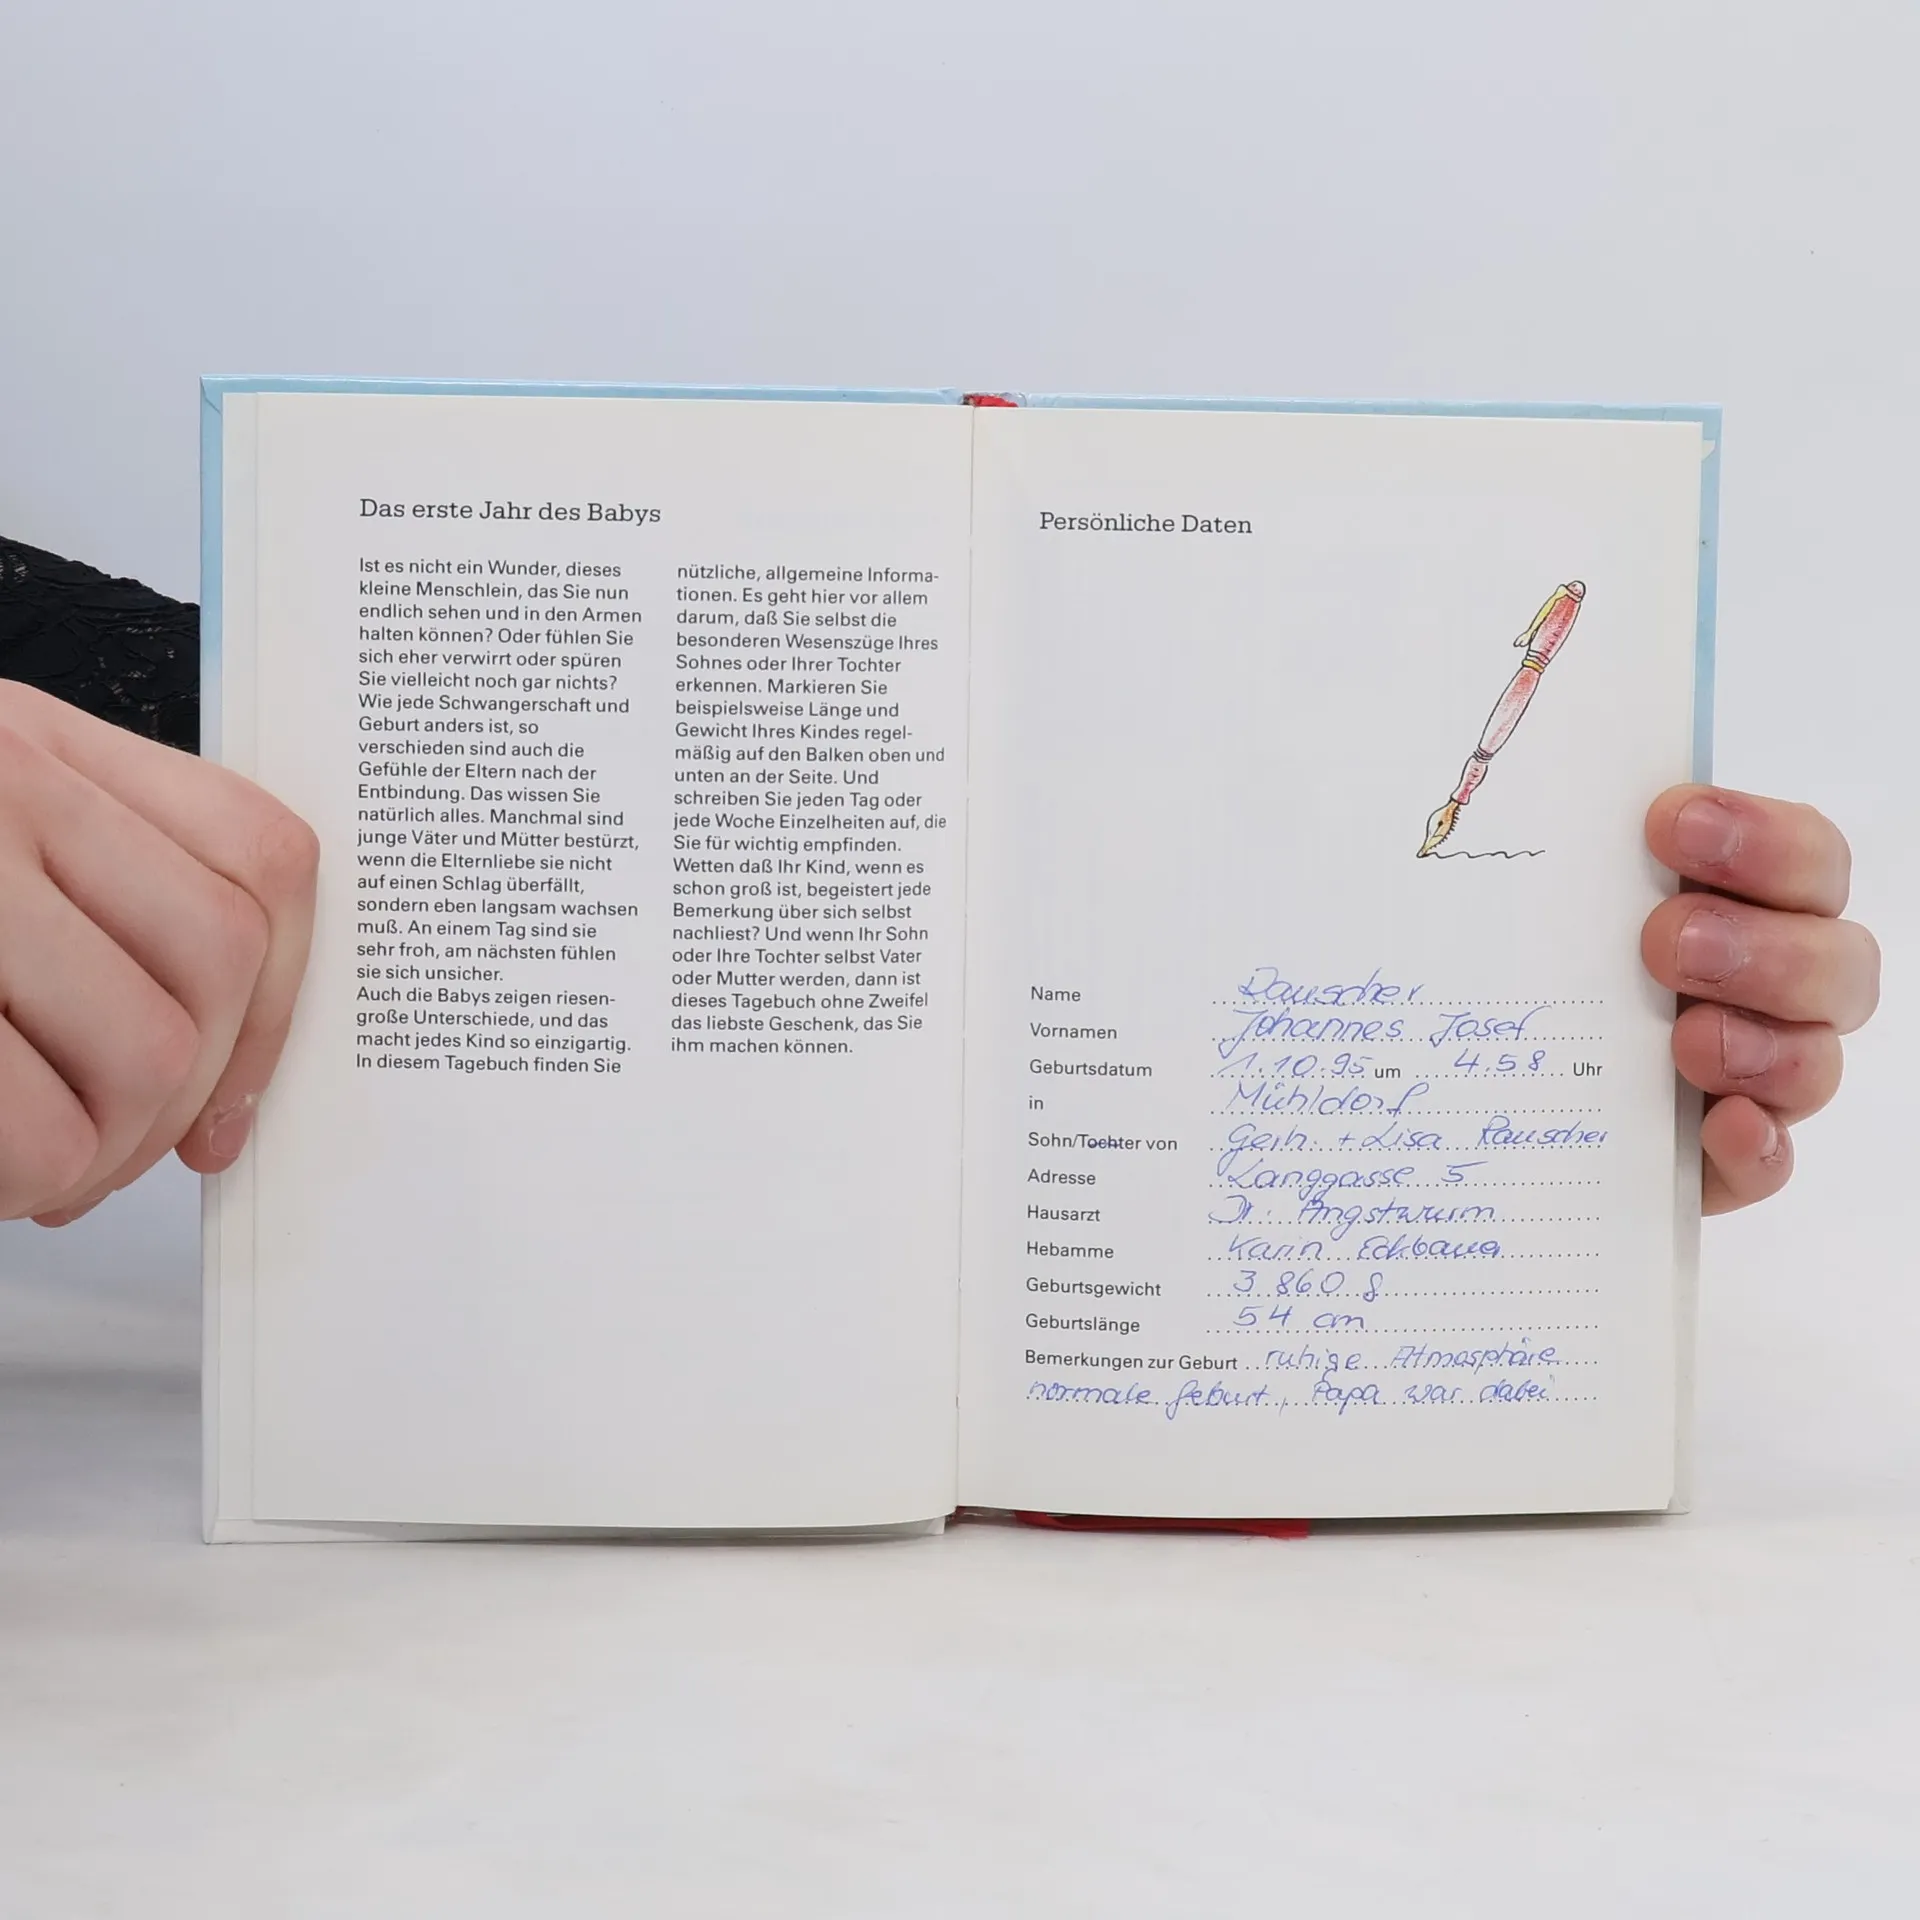 Das erste Jahr des Babys
Ist es nicht ein Wunder, dieses
kleine Menschlein, das Sie nun
endlich sehen und in den Armen
halten können? Oder fühlen Sie
sich eher verwirrt oder spüren
Sie vielleicht noch gar nichts?
Wie jede Schwangerschaft und
Geburt anders ist, so
verschieden sind auch die
Gefühle der Eltern nach der
Entbindung. Das wissen Sie
natürlich alles. Manchmal sind
junge Väter und Mütter bestürzt,
wenn die Elternliebe sie nicht
auf einen Schlag überfällt,
sondern eben langsam wachsen
muß. An einem Tag sind sie
sehr froh, am nächsten fühlen
sie sich unsicher.
Auch die Babys zeigen riesen-
große Unterschiede, und das
macht jedes Kind so einzigartig.
In diesem Tagebuch finden Sie
nützliche, allgemeine Informa-
tionen. Es geht hier vor allem
darum, daß Sie selbst die
besonderen Wesenszüge Ihres
Sohnes oder Ihrer Tochter
erkennen. Markieren Sie
beispielsweise Länge und
Gewicht Ihres Kindes regel-
mäßig auf den Balken oben und
unten an der Seite. Und
schreiben Sie jeden Tag oder
jede Woche Einzelheiten auf, die
Sie für wichtig empfinden.
Wetten daß Ihr Kind, wenn es
schon groß ist, begeistert jede
Bemerkung über sich selbst
nachliest? Und wenn Ihr Sohn
oder Ihre Tochter selbst Vater
oder Mutter werden, dann ist
dieses Tagebuch ohne Zweifel
das liebste Geschenk, das Sie
ihm machen können.
Persönliche Daten
Name Rauscher
Vornamen Johannes Josef
Geburtsdatum 1.10.95 um 4.58 Uhr
in Mühldorf
Sohn/Tochter von Gerh. + Lisa Rauscher
Adresse Langgasse 5
Hausarzt Dr. Angstwurm
Hebamme Karin
Geburtsgewicht 3 860 g
Geburtslänge 54 cm
Bemerkungen zur Geburt ruhige Atmosphäre
normale Geburt, Papa war dabei